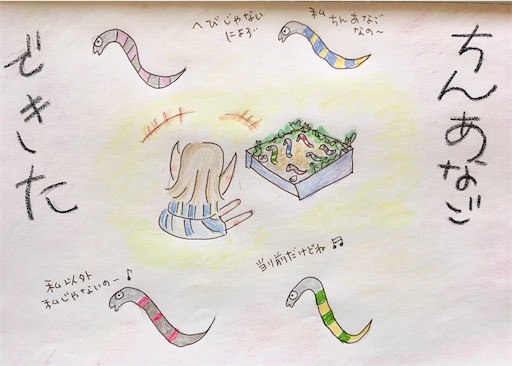 ちんあなご
できした
私ちんあなご
なの〜
へびじゃない
によぶ
当り前だけどね♬
私以外
私じゃないのー♪